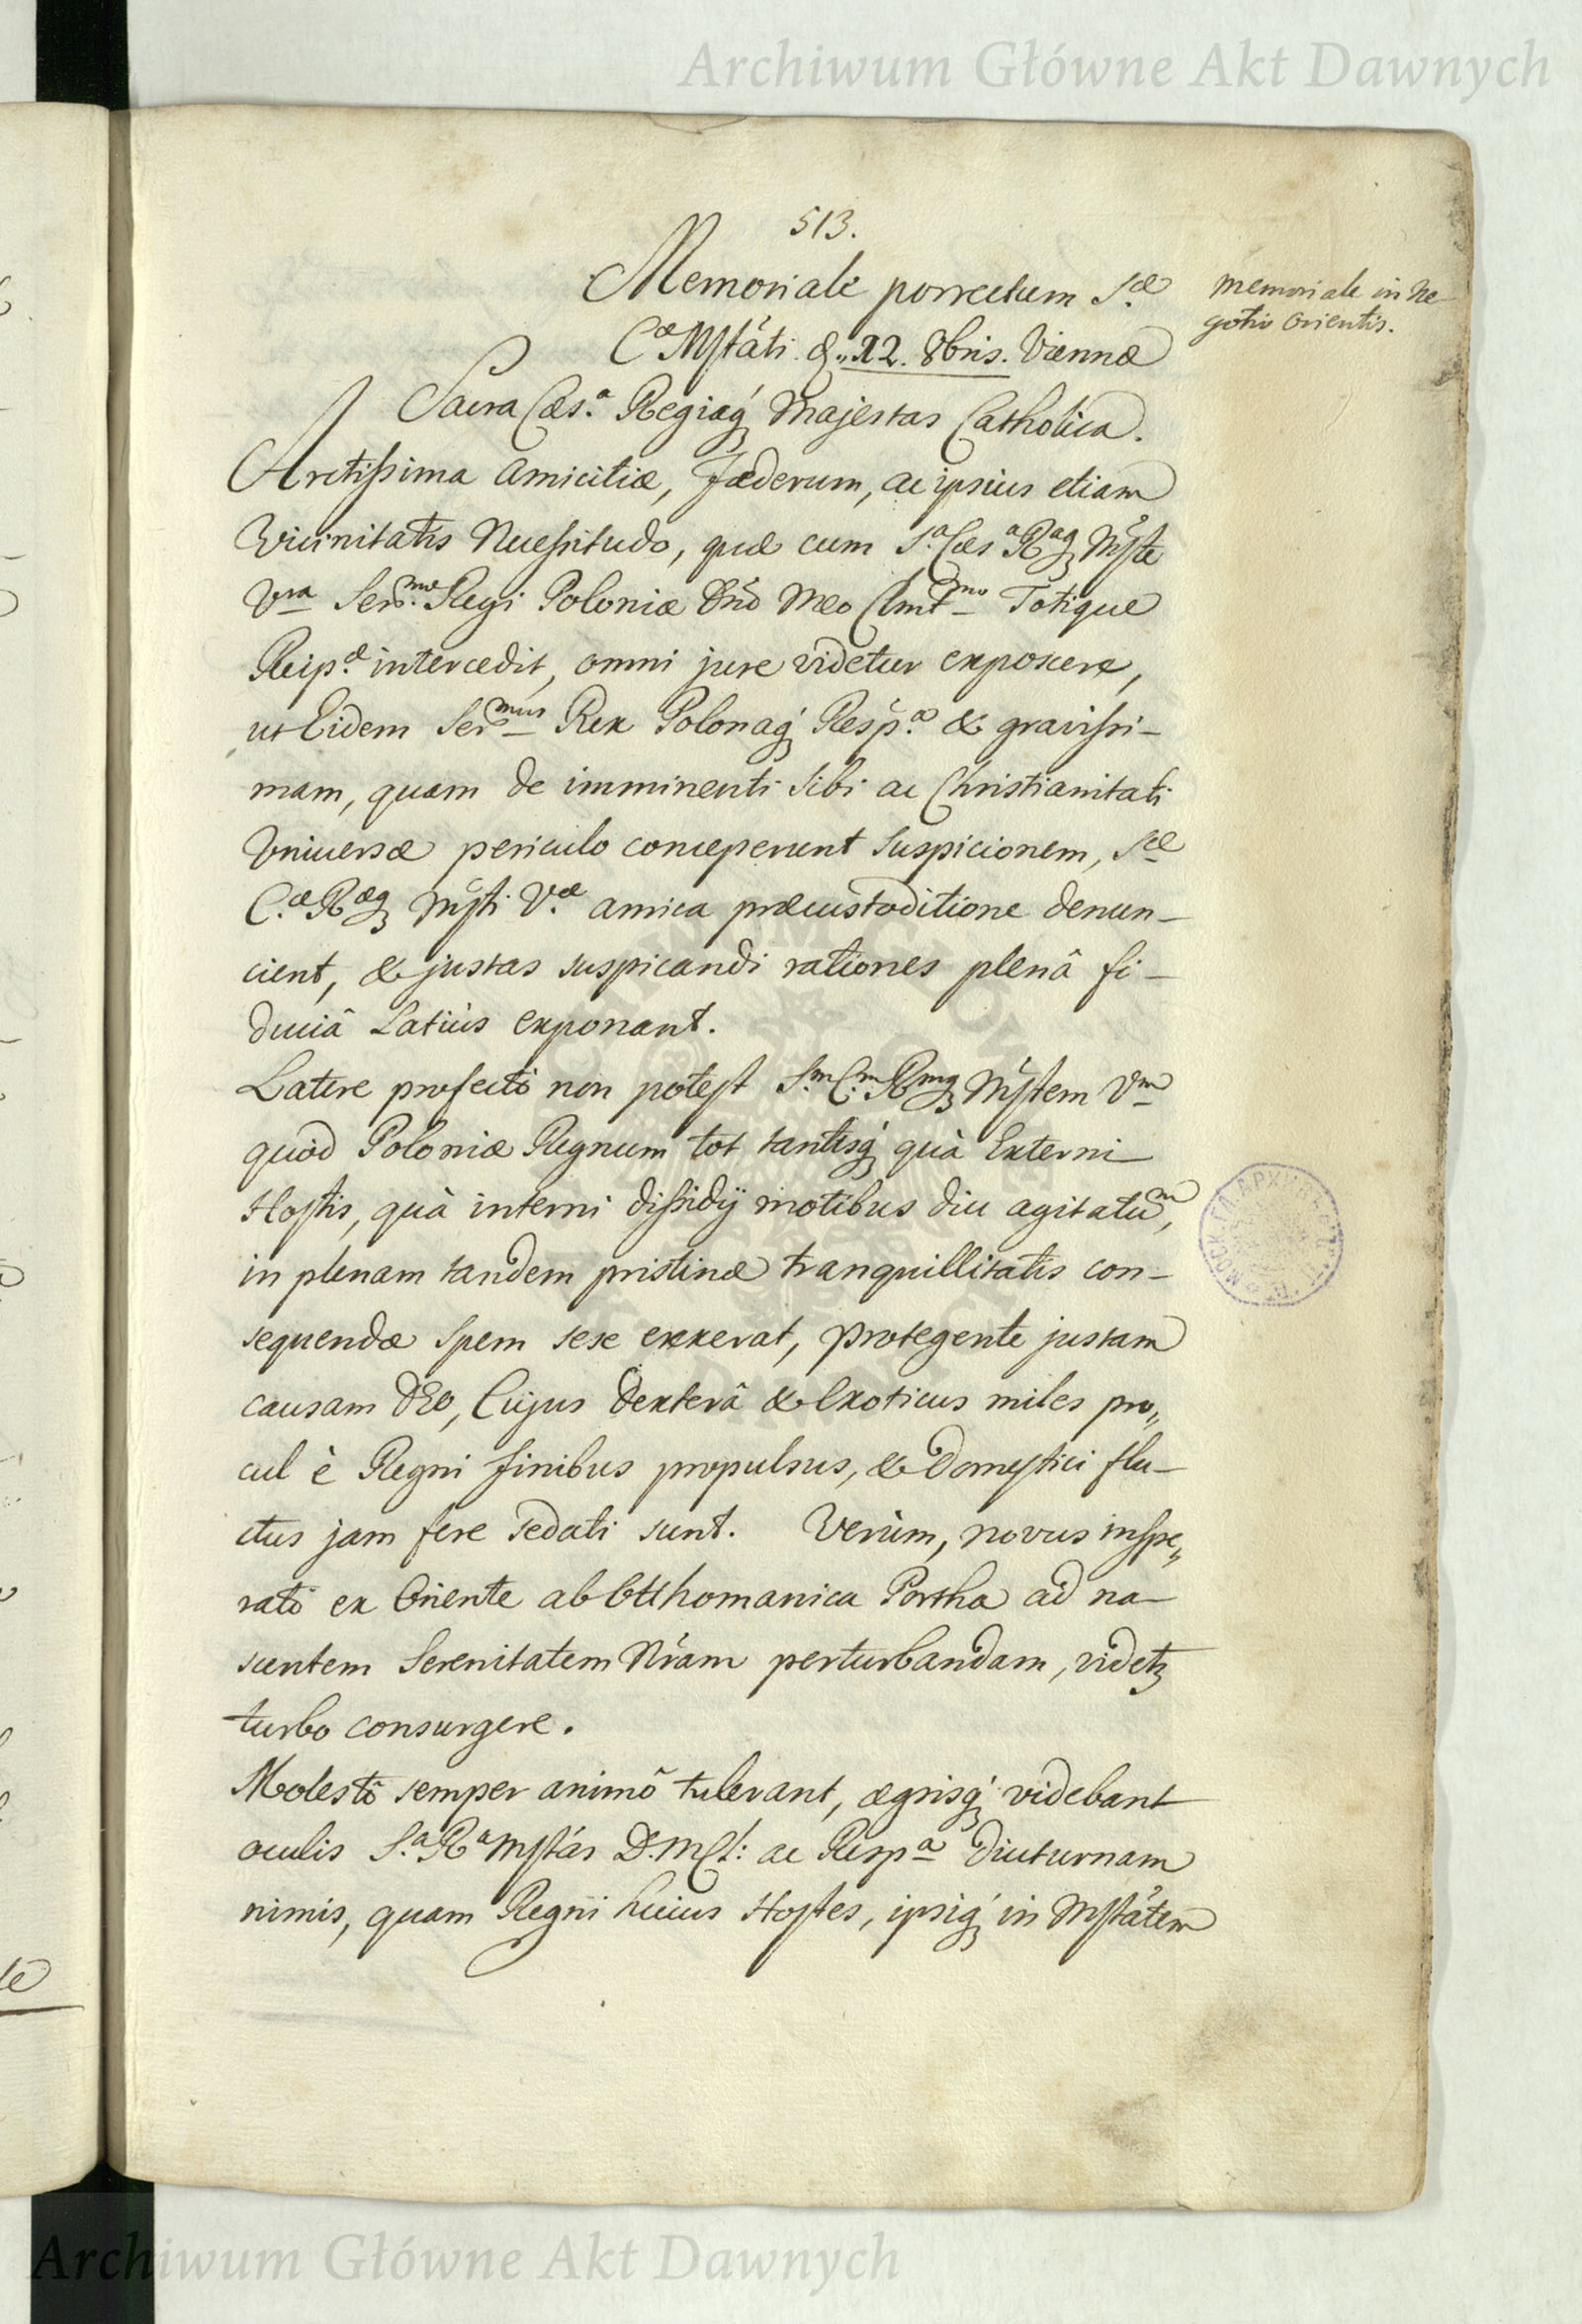 Archiwum Główne Akt Dawnych
513.
Memoriale porrectum S.æ
C.æ Mstáti d„ 12. 8bris. Viennæ
memoriale in Ne-
gotio Orientis.
Sacra Cæs.a Regiaq́ Majestas Catholica.
Arctissima Amicitiæ, Fæderum, ac ipsius etiam
Vicinitatis Necessitudo, quæ cum S.a Cæs.a Raq Mste
Vra Ser.mo Regi Poloniæ Dno Meo Clmtmo Totique
Reip.æ intercedit, omni jure videtur exposcere,
ut Eidem Sermus Rex Polonaq́ Resp.a & gravissi-
mam, quam de imminenti Sibi ac Christianitati
Vniuersæ periculo conceperunt Suspicionem, Sæ
C.æ Ræq Msti V.æ amica præcustoditione denun-
cient, & justas suspicandi rationes plenâ fi-
duciâ Latiùs exponant.
Latere profectò non potest S.m C.m Rmq Mstem Vm
quòd Poloniæ Regnum tot tantisq́ quà Externi
Hostis, quà interni dissidÿ motibus diu agitatum,
in plenam tandem pristinæ tranquillitatis con-
sequendæ Spem sese erexerat, protegente justam
causam DEO, Cujus Dexterâ & Exoticus miles pro„
cul è Regni finibus propulsus, & Domestici flu-
ctus jam fere sedati sunt. Verùm, novus inspe„
ratò ex Oriente ab Otthomanica Portha ad na-
scentem Serenitatem Nram perturbandam, videtz
turbo consurgere.
Molestô semper animô tulerant, ægrisq́ videbant
oculis S.a R.a Mstás D.MCl: ac Respa Diuturnam
nimis, quam Regni huius Hostes, ipsiq́ in Mstátem
Archiwum Główne Akt Dawnych